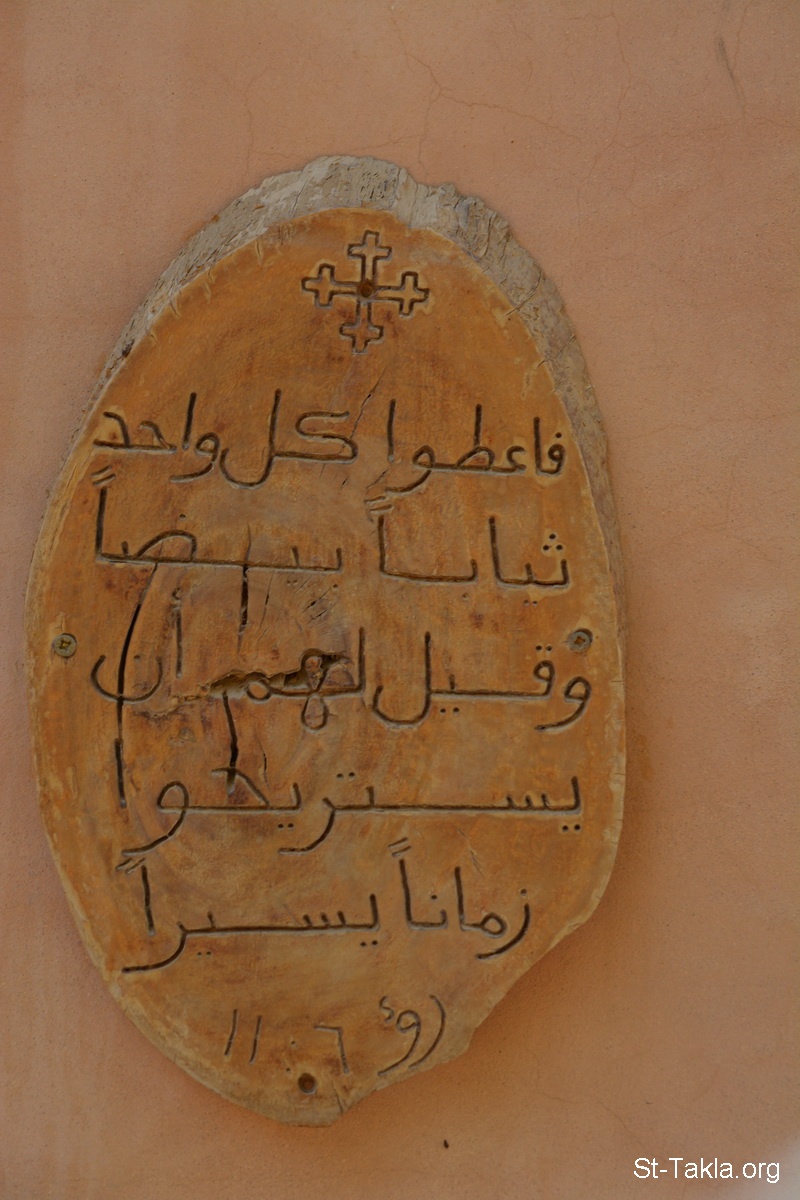 فاعطوا كل واحد
ثياباً بيضاً
وقيل لهم أن
يستريحوا
زماناً يسيراً
رؤ ٦ : ١١
St-Takla.org